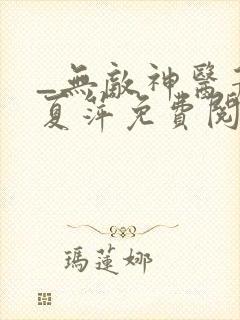 _無敵神醫
夏萍免費閱
瑪蓮娜